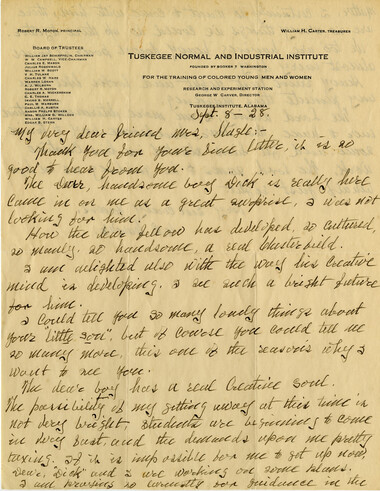 ROBERT R. MOTON, PRINCIPAL
WILLIAM H. CARTER, TREASURER
BOARD OF TRUSTEES
WILLIAM JAY SCHIEFFELIN, CHAIRMAN
W. W. CAMPBELL, VICE-CHAIRMAN
CHARLES E. MASON
JULIUS ROSENWALD
WILLIAM M. SCOTT
V. H. TULANE
CHARLES W. HARE
WARREN LOGAN
A. J. WILBORN
ROBERT R. MOTON
ALEXANDER B. TROWBRIDGE
G. C. THOMAS
JAMES S. HARDIN
PAUL M. WARBURG
WILLIAM P. CARTER
TUSKEGEE NORMAL AND INDUSTRIAL INSTITUTE
FOUNDED BY BOOKER T. WASHINGTON
FOR THE TRAINING OF COLORED YOUNG MEN AND WOMEN
RESEARCH AND EXPERIMENT STATION
GEORGE W. CARVER, DIRECTOR
TUSKEGEE INSTITUTE, ALABAMA
Sept. 8-28.
My very dear friend Mrs. :-
Thank you for your fine letter, it is so
good to hear from you.
The dear, handsome boy "Dick" is really here
came in on me as a great surprise, I was not
looking for him.
How the dear fellow has developed, so cultured,
so manly, so handsome, a real Chesterfield.
I am delighted also with the way his creative
mind is developing. I see such a bright future
for him.
I could tell you so many lovely things about
your "little son", but of course you could tell me
so many more, this one of the reasons why I
want to see you.
The dear boy has a real Creative soul.
The possibility of my getting away at this time is
not very bright. Students are beginning to come
in very fast, and the demands upon me pretty
taxing. If it is impossible for me to get up now,
Dear, Dick and I are working on some plans.
I am praying so earnestly for guidance in the